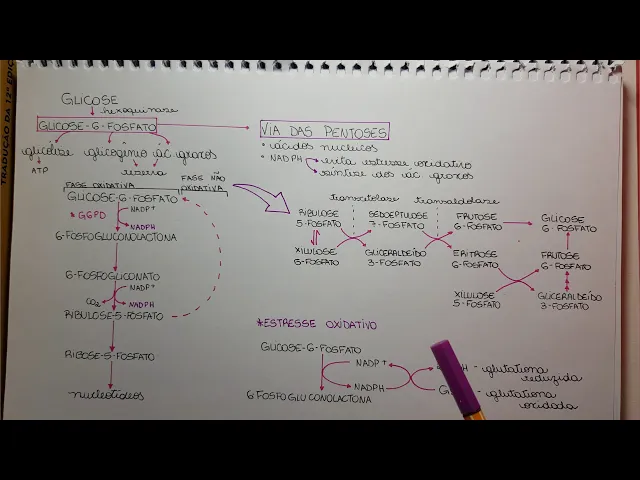 TRADUÇÃO DA 12ª EDIÇ
GLICOSE
hexoquinase
GLICOSE-6-FOSFATO
glicólise glicogênio ác graxos
ATP
reserva
VIA DAS PENTOSES
• ácidos nucleicos
• NADPH
evita estresse oxidativo
síntese dos ác graxos
FASE OXIDATIVA
FASE NÃO
OXIDATIVA
GLICOSE-6-FOSFATO
* G6PD
NADP+
NADPH
6-FOSFOGLUCONOLACTONA
6-FOSFOGLICONATO
CO2
NADP+
NADPH
RIBULOSE-5-FOSFATO
RIBOSE-5-FOSFATO
nucleotídeos
transcetolase
transaldolase
RIBULOSE
5-FOSFATO
SEDOEPTULOSE
7-FOSFATO
FRUTOSE
6-FOSFATO
GLICOSE
6-FOSFATO
XILULOSE
6-FOSFATO
GLICERALDEÍDO
3-FOSFATO
ERITROSE
6-FOSFATO
FRUTOSE
6-FOSFATO
XILULOSE
5-FOSFATO
GLICERALDEÍDO
3-FOSFATO
*ESTRESSE OXIDATIVO
GLICOSE-6-FOSFATO
NADP+
NADPH
6 FOSFOGLUCONOLACTONA
H - glutationa
reduzida
G - glutationa
oxidada